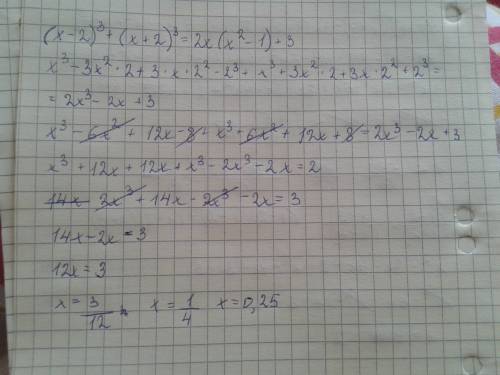 (x-2)³+(x+2)³=2x(x²-1)+3
x³-3x²·2+3·x·2²-2³+x³+3x²·2+3x·2²+2³=
=2x³-2x+3
x³-6x²+12x-8+x³+6x²+12x+8=2x³-2x+3
x³+12x+12x+x³-2x³-2x=2
14x 2x³+14x-2x³-2x=3
14x-2x=3
12x=3
x=3/12, x=1/4 x=0,25